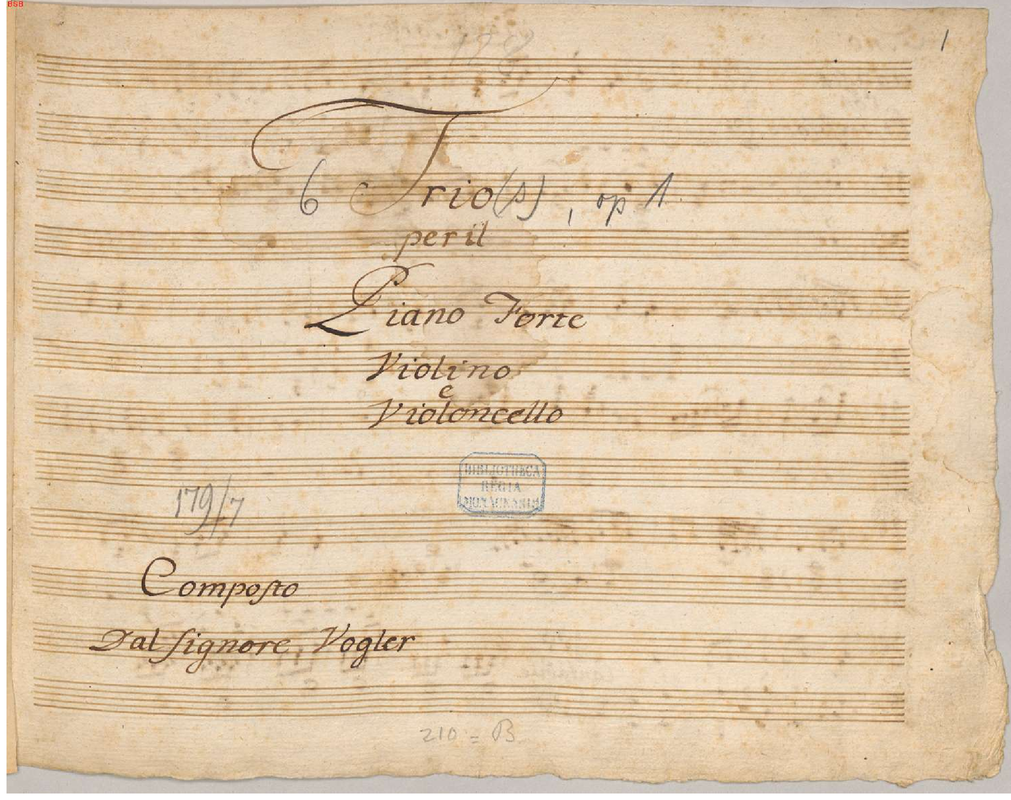 BSB
1
6 Trio(s), op 1.
per il
Piano Forte
Violino
e
Violoncello
BIBLIOTHECA
REGIA
MONACENSIS
179/7
Composto
Dal Signore Vogler
210 = B